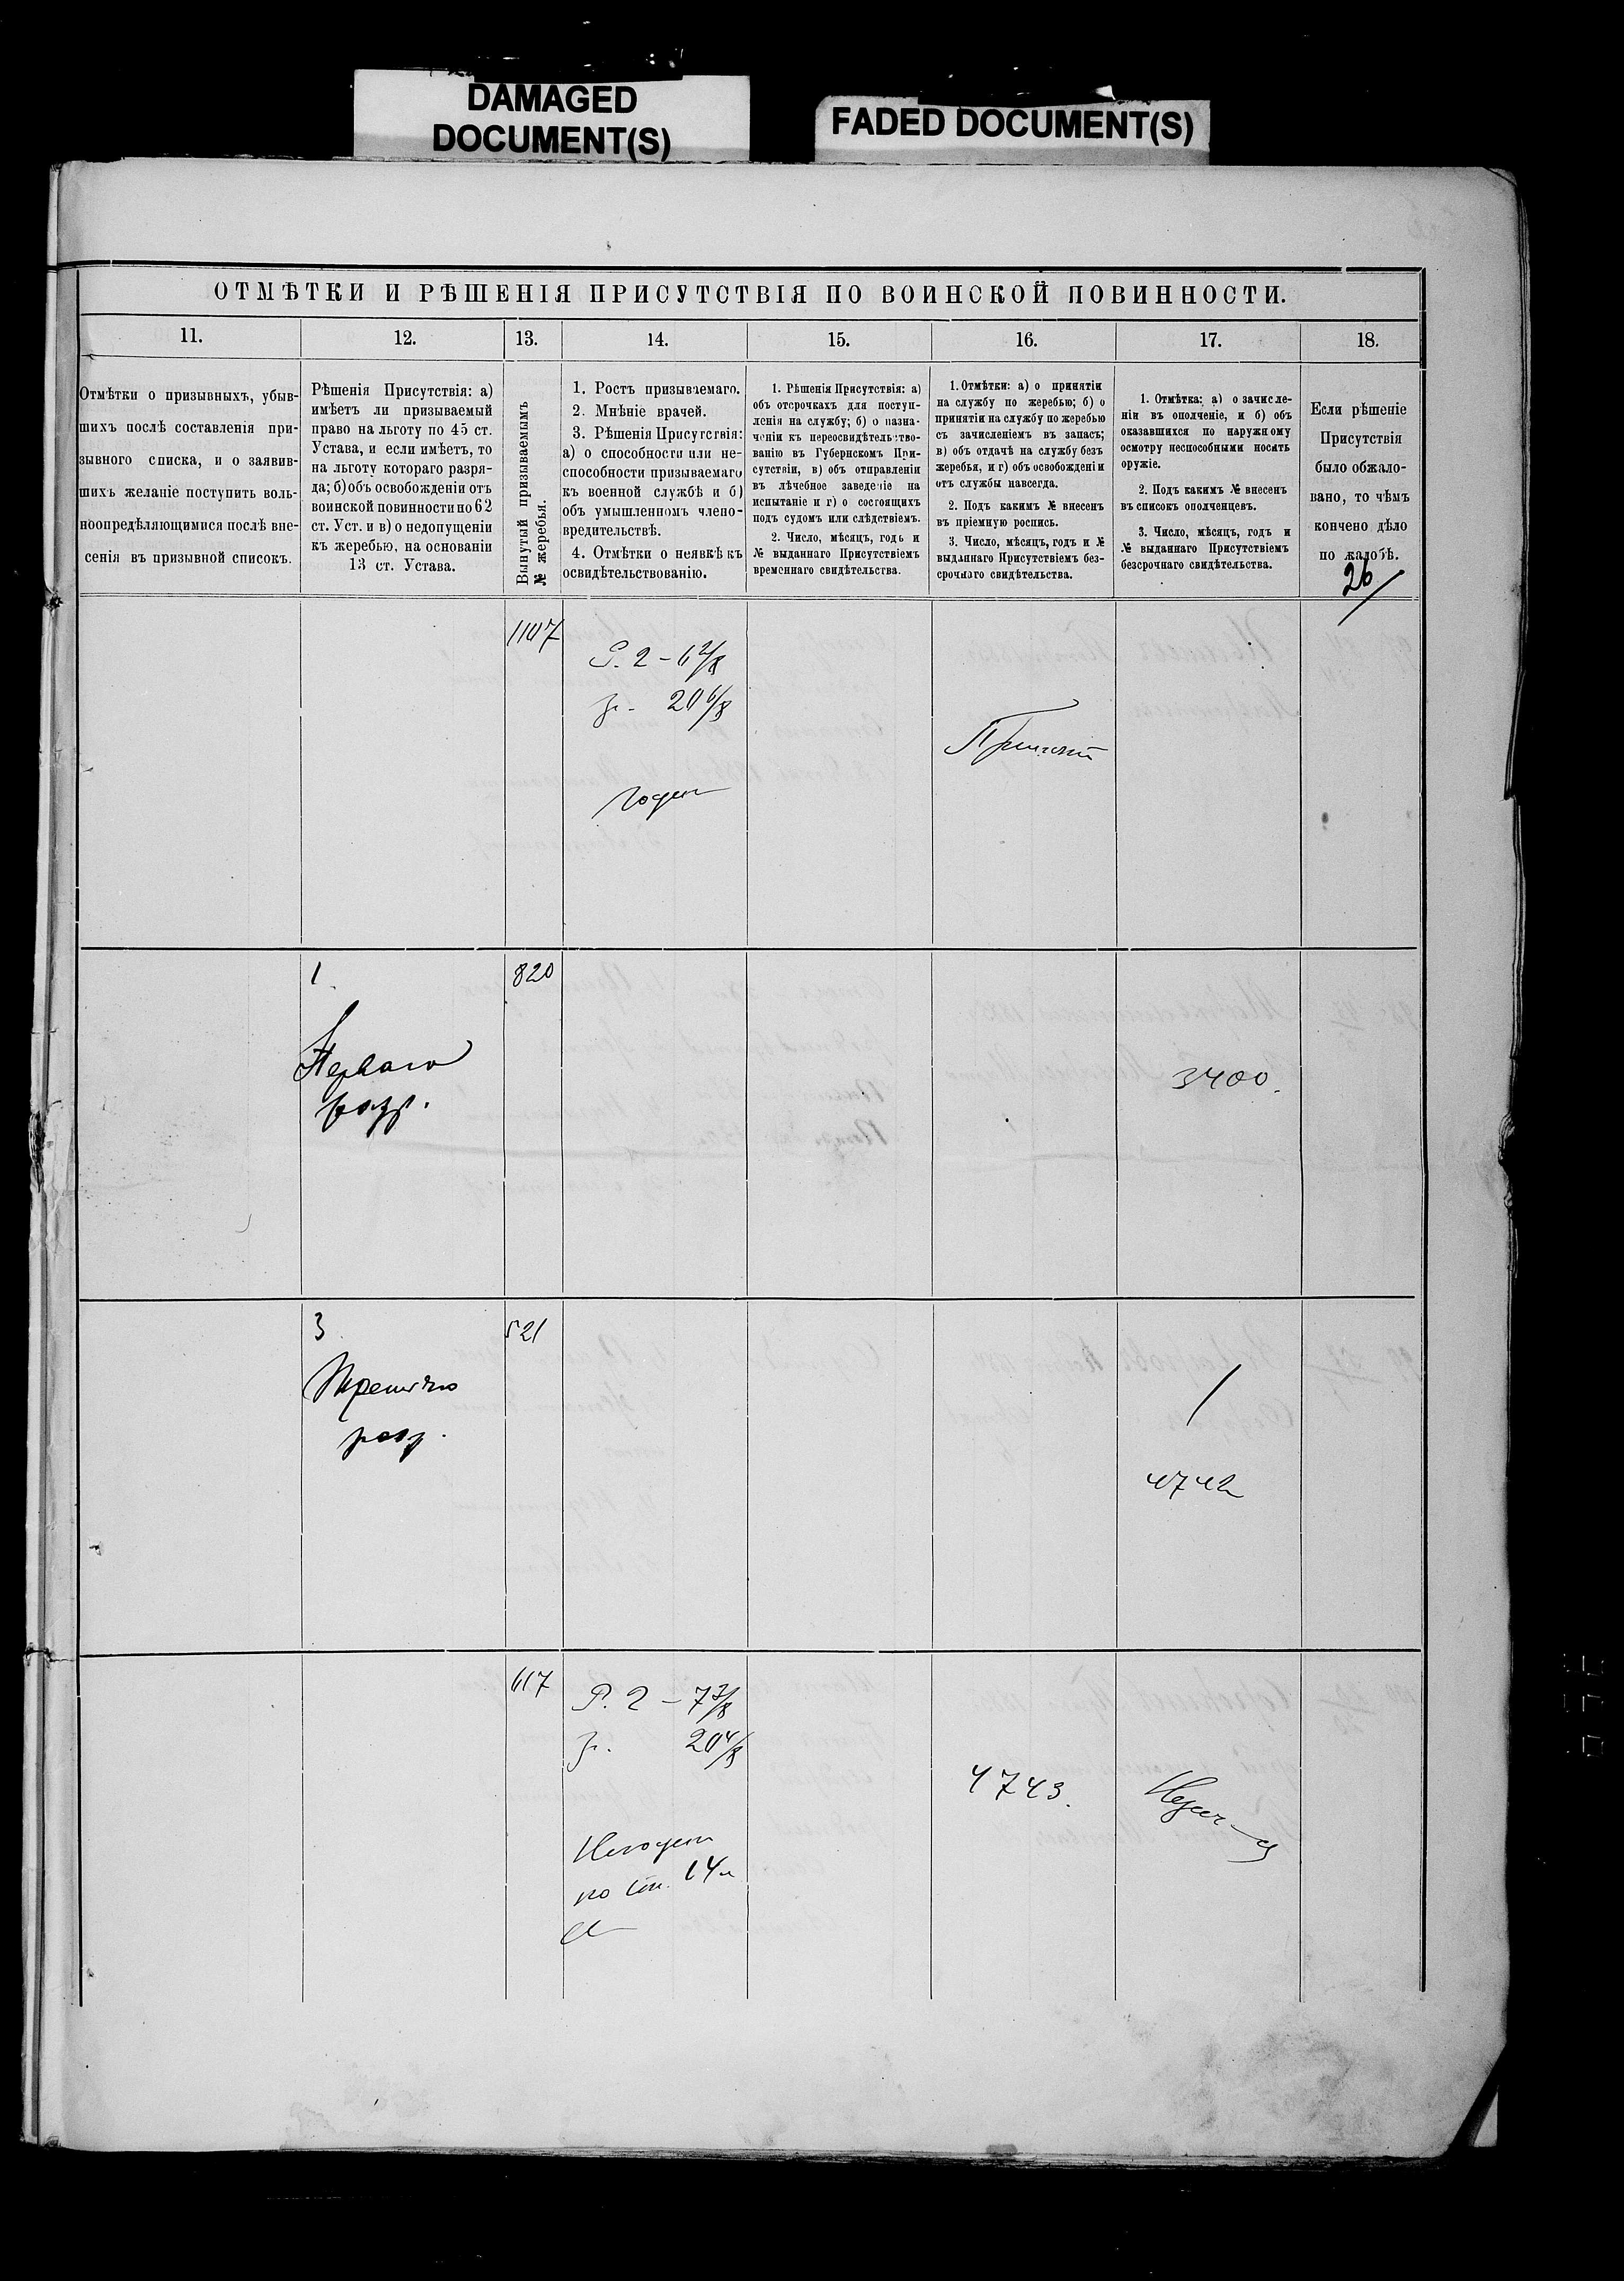 DAMAGED
DOCUMENT(S)
FADED DOCUMENT(S)
ОТМѢТКИ И РѢШЕНІЯ ПРИСУТСТВІЯ ПО ВОИНСКОЙ ПОВИННОСТИ.
11.
12.
13.
14.
15.
16.
17.
18.
Отмѣтки о призывныхъ, убыв-
шихъ послѣ составленія при-
зывного списка, и о заявив-
шихъ желаніе поступить воль-
ноопредѣляющимися послѣ вне-
сенія въ призывной списокъ.
Рѣшенія Присутствія: а)
имѣетъ ли призываемый
право на льготу по 45 ст.
Устава, и если имѣетъ, то
на льготу котораго разря-
да; б) объ освобожденіи отъ
воинской повинности по 62
ст. Уст. и в) о недопущеніи
къ жеребью, на основаніи
13 ст. Устава.
Вынутый призываемымъ
№ жеребья.
1. Ростъ призываемаго.
2. Мнѣніе врачей.
3. Рѣшенія Присутствія:
а) о способности или не-
способности призываемаго
къ военной службѣ и б)
объ умышленномъ члено-
вредительствѣ.
4. Отмѣтки о неявкѣ къ
освидѣтельствованію.
1. Рѣшенія Присутствія: а)
объ отсрочкахъ для поступ-
ленія на службу; б) о назна-
ченіи къ переосвидѣтельство-
ванію въ Губернскомъ При-
сутствіи, в) объ отправленіи
въ лѣчебное заведеніе на
испытаніе и г) о состоящихъ
подъ судомъ или слѣдствіемъ.
2. Число, мѣсяцъ, годъ и
№ выданнаго Присутствіемъ
временнаго свидѣтельства.
1. Отмѣтки: а) о принятіи
на службу по жеребью; б) о
принятіи на службу по жеребью
съ зачисленіемъ въ запасъ;
в) объ отдачѣ на службу безъ
жеребья, и г) объ освобожденіи
отъ службы навсегда.
2. Подъ какимъ № внесенъ
въ пріемную роспись.
3. Число, мѣсяцъ, годъ и №
выданнаго Присутствіемъ без-
срочнаго свидѣтельства.
1. Отмѣтка: а) о зачисле-
ніи въ ополченіе, и б) объ
оказавшихся по наружному
осмотру неспособными носить
оружіе.
2. Подъ какимъ № внесенъ
въ списокъ ополченцевъ.
3. Число, мѣсяцъ, годъ и
№ выданнаго Присутствіемъ
безсрочнаго свидѣтельства.
Если рѣшеніе
Присутствія
было обжало-
вано, то чѣмъ
кончено дѣло
по жалобѣ.
26/
1107
Р. 2 – 6 2/8
гр. 20 6/8
Годенъ
Принятъ
1
820
Перваго
разр.
3400.
3
521
Третьяго
разр.
/
4742
617
Р. 2 – 7 3/8
гр. 20 4/8
Негоденъ
по ст. 14
4743.